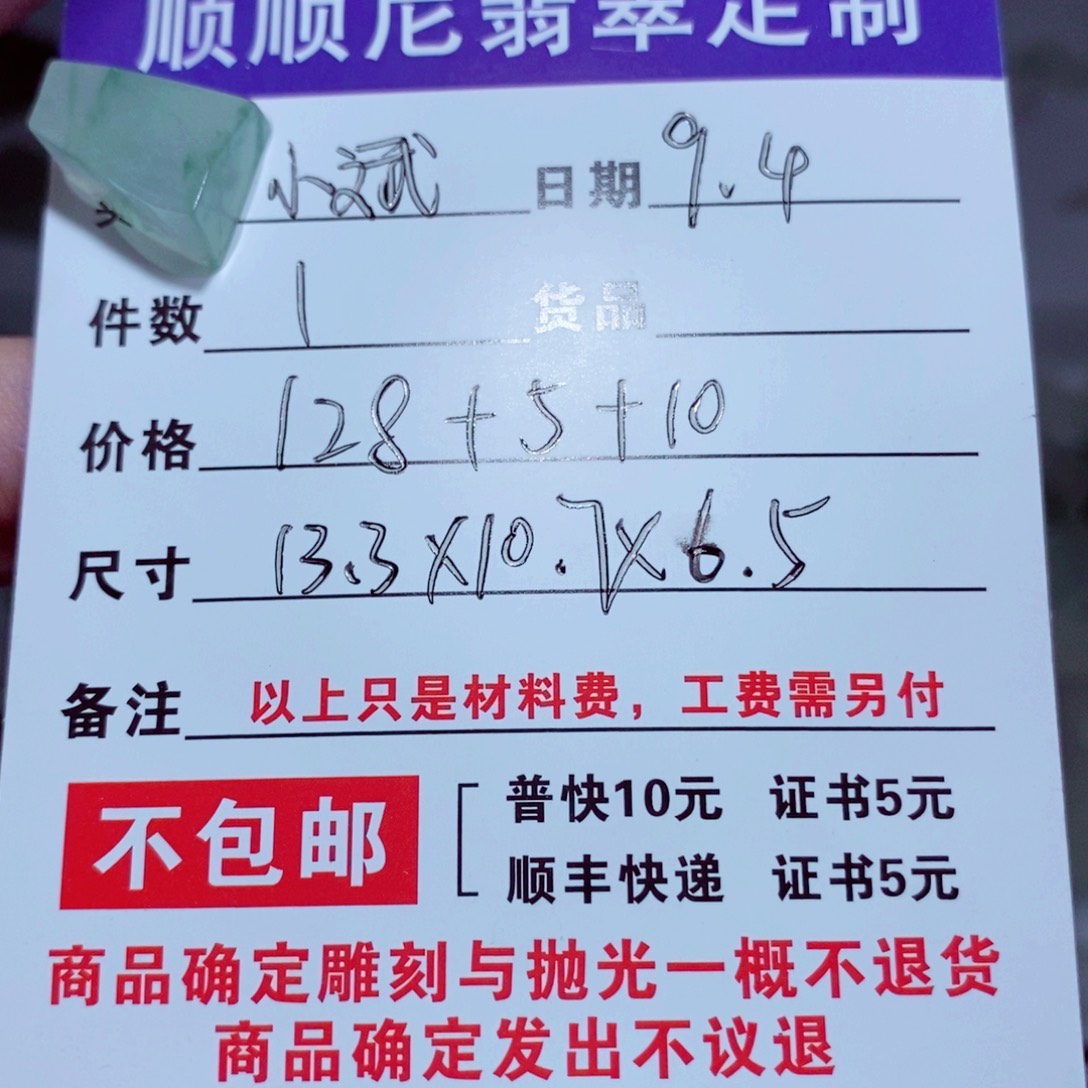 顺顺尼翡翠定制
小斌 日期 9.4
件数 1 货品
价格 128+5+10
尺寸 13.3×10.7×6.5
备注 以上只是材料费，工费需另付
不包邮
普快10元 证书5元
顺丰快递 证书5元
商品确定雕刻与抛光一概不退货
商品确定发出不议退